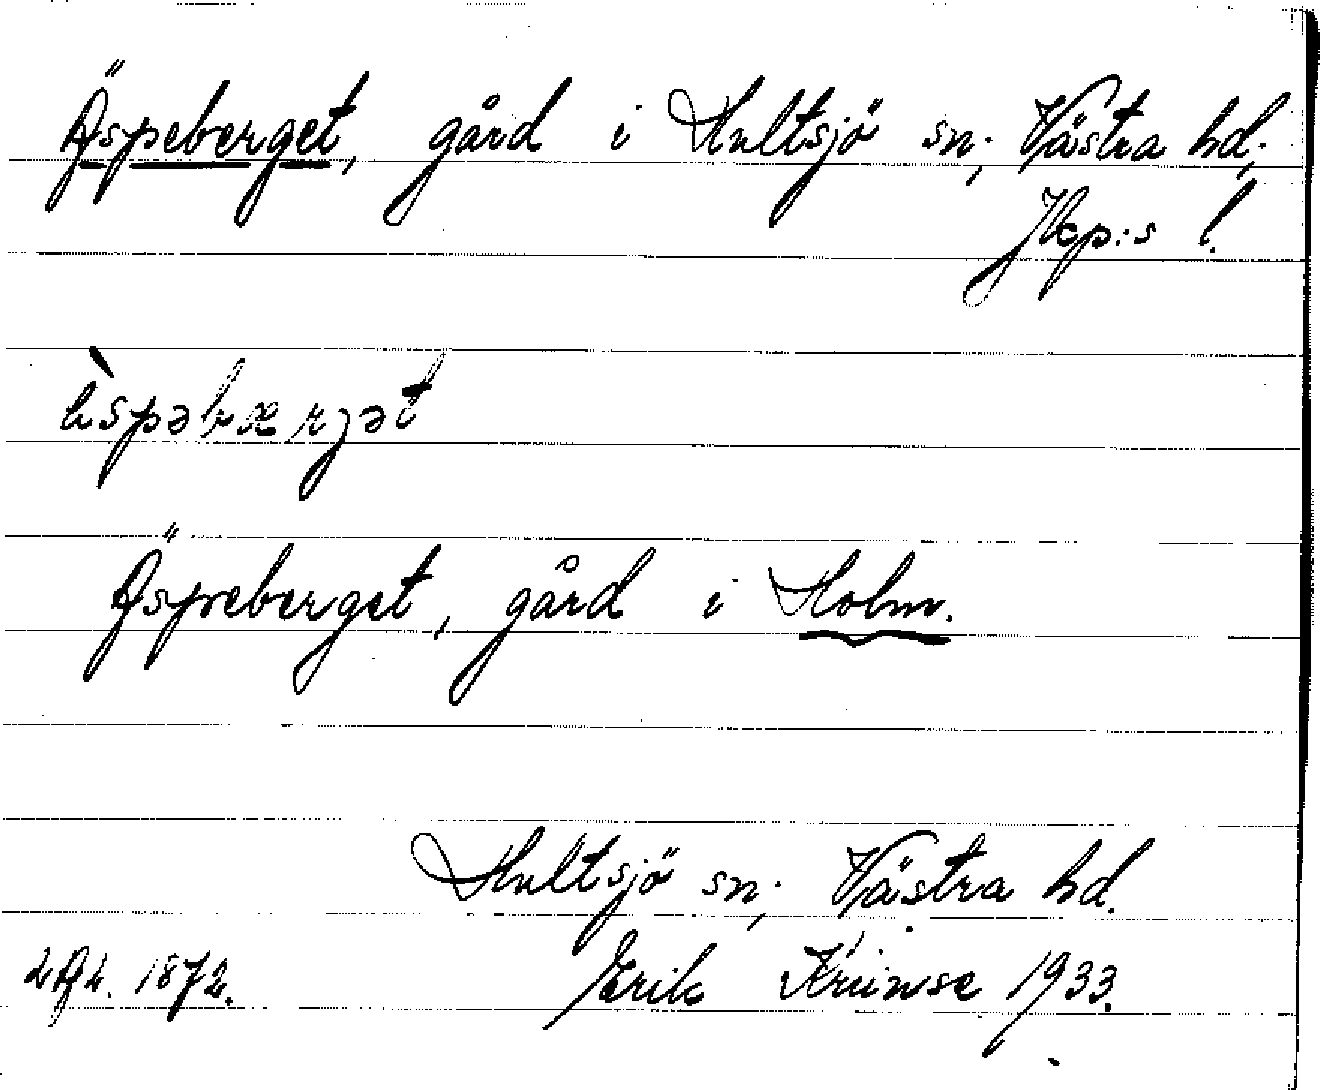 Äspeberget, gård i Hultsjö sn; Västra hd;
Jkp:s l.
ὰspəbærjət
Äspeberget, gård i Holm.
Hultsjö sn; Västra hd.
Erik 1933.
1872.